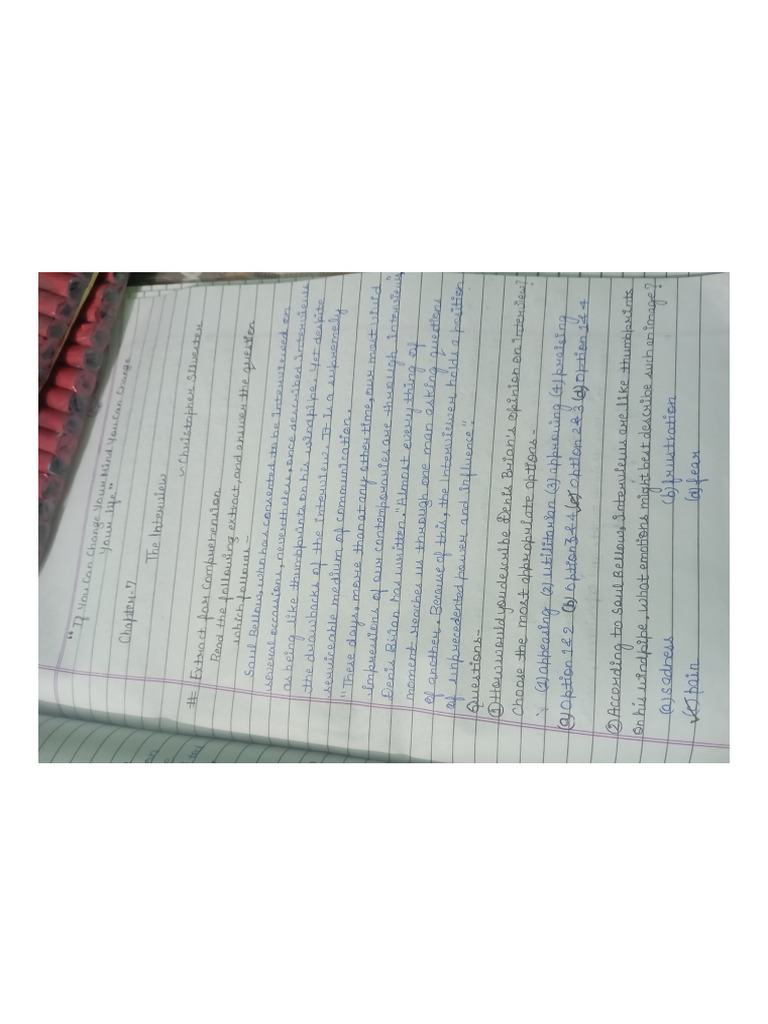 "If You Can Change Your Mind You Can Change
Your life"
Chapter-7
The Interview
~ Christopher Silvester
# Extract for comprehension
Read the following extract, and answer the question
which follows-
Saul Bellow, who has consented to be interviewed on
several occasions, nevertheless, once described interviews
as being like thumbprints on his windpipe. Yet despite
the drawbacks of the interview, It is a supremely
serviceable medium of communication.
"These days, more than at any other time, our most vivid
impressions of our contemporaries are through interviews"
Denis Brian has written. "Almost everything of
moment reaches us through one man asking questions
of another. Because of this, the interviewer holds a position
of unprecedented power and influence."
Questions-
① How would you describe Denis Brian's opinion on interview?
Choose the most appropriate options-
(1) appeasing (2) utilitarian (3) approving (4) praising
(a) option 1 & 2 (b) option 3 & 4 (c) option 2 & 3 (d) option 1 & 4
② According to Saul Bellow, interviews are like thumbprints
on his windpipe, what emotions might best describe such an image?
(a) sadness (b) frustration
(c) pain (d) fear